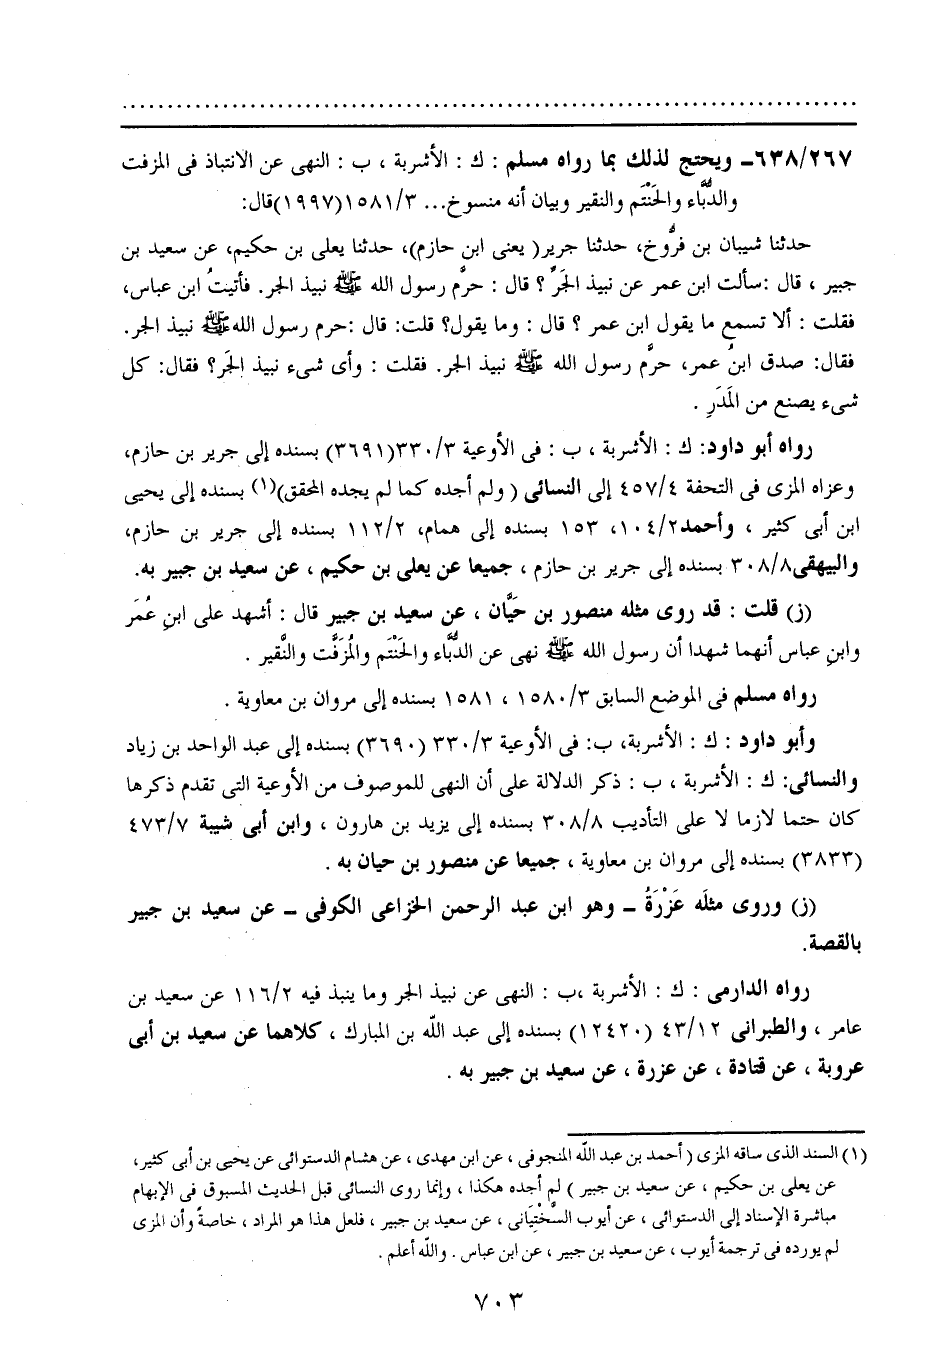 ٦٣٨/٢٦٧ــ ويحتج لذلك بما رواه مسلم : ك : الأشربة ، ب : النهى عن الانتباذ فى المزفت
والدُّبَّاء والحَنْتَم والنقير وبيان أنه منسوخ... ١٥٨١/٣(١٩٩٧)قال:
حدثنا شيبان بن فرُّوخ، حدثنا جرير( يعنى ابن حازم)، حدثنا يعلى بن حكيم، عن سعيد بن
جبير ، قال :سألت ابن عمر عن نبيذ الجَرِّ ؟ قال : حرَّم رسول الله ﷺ نبيذ الجر. فأتيتُ ابن عباس،
فقلت : ألا تسمع ما يقول ابن عمر ؟ قال : وما يقول؟ قلت: قال :حرم رسول الله ﷺ نبيذ الجر.
فقال: صدق ابنُ عمر، حرَّم رسول الله ﷺ نبيذ الجر. فقلت : وأى شىء نبيذ الجَر؟ فقال: كل
شىء يصنع من المَدَرِ .
رواه أبو داود: ك : الأشربة ، ب : فى الأوعية ٣٣٠/٣(٣٦٩١) بسنده إلى جرير بن حازم،
وعزاه المزى فى التحفة ٤٥٧/٤ إلى النسائى ( ولم أجده كما لم يجده المحقق)(١) بسنده إلى يحيى
ابن أبى كثير ، وأحمد١٠٤/٢، ١٥٣ بسنده إلى همام، ١١٢/٢ بسنده إلى جرير بن حازم،
والبيهقى٣٠٨/٨ بسنده إلى جرير بن حازم ، جميعا عن يعلى بن حكيم ، عن سعيد بن جبير به.
(ز) قلت : قد روى مثله منصور بن حَيَّان ، عن سعيد بن جبير قال : أشهد على ابنِ عُمَر
وابنِ عباس أنهما شهدا أن رسول الله ﷺ نهى عن الدُّبَّاء والحَنْتَم والمُزَفَّت والنَّقير .
رواه مسلم فى الموضع السابق ١٥٨٠/٣ ، ١٥٨١ بسنده إلى مروان بن معاوية .
وأبو داود : ك : الأشربة، ب: فى الأوعية ٣٣٠/٣ (٣٦٩٠) بسنده إلى عبد الواحد بن زياد
والنسائى: ك : الأشربة ، ب : ذكر الدلالة على أن النهى للموصوف من الأوعية التى تقدم ذكرها
كان حتما لازما لا على التأديب ٣٠٨/٨ بسنده إلى يزيد بن هارون ، وابن أبى شيبة ٤٧٣/٧
(٣٨٣٣) بسنده إلى مروان بن معاوية ، جميعا عن منصور بن حيان به .
(ز) وروى مثلَه عَزْرَةُ ــ وهو ابن عبد الرحمن الخزاعى الكوفى ــ عن سعيد بن جبير
بالقصة.
رواه الدارمى : ك : الأشربة ،ب : النهى عن نبيذ الجر وما ينبذ فيه ١١٦/٢ عن سعيد بن
عامر ، والطبرانى ٤٣/١٢ (١٢٤٢٠) بسنده إلى عبد الله بن المبارك ، كلاهما عن سعيد بن أبى
عروبة ، عن قتادة ، عن عزرة ، عن سعيد بن جبير به .
(١) السند الذى ساقه المزى ( أحمد بن عبد الله المنجوفى ، عن ابن مهدى ، عن هشام الدستوائى عن يحيى بن أبى كثير،
عن يعلى بن حكيم ، عن سعيد بن جبير ) لم أجده هكذا ، وإنما روى النسائى قبل الحديث المسبوق فى الإبهام
مباشرة الإسناد إلى الدستوائى ، عن أيوب السَّخْتِيَانى ، عن سعيد بن جبير ، فلعل هذا هو المراد ، خاصةً وأن المزى
لم يورده فى ترجمة أيوب ، عن سعيد بن جبير ، عن ابن عباس . والله أعلم .
٧٠٣